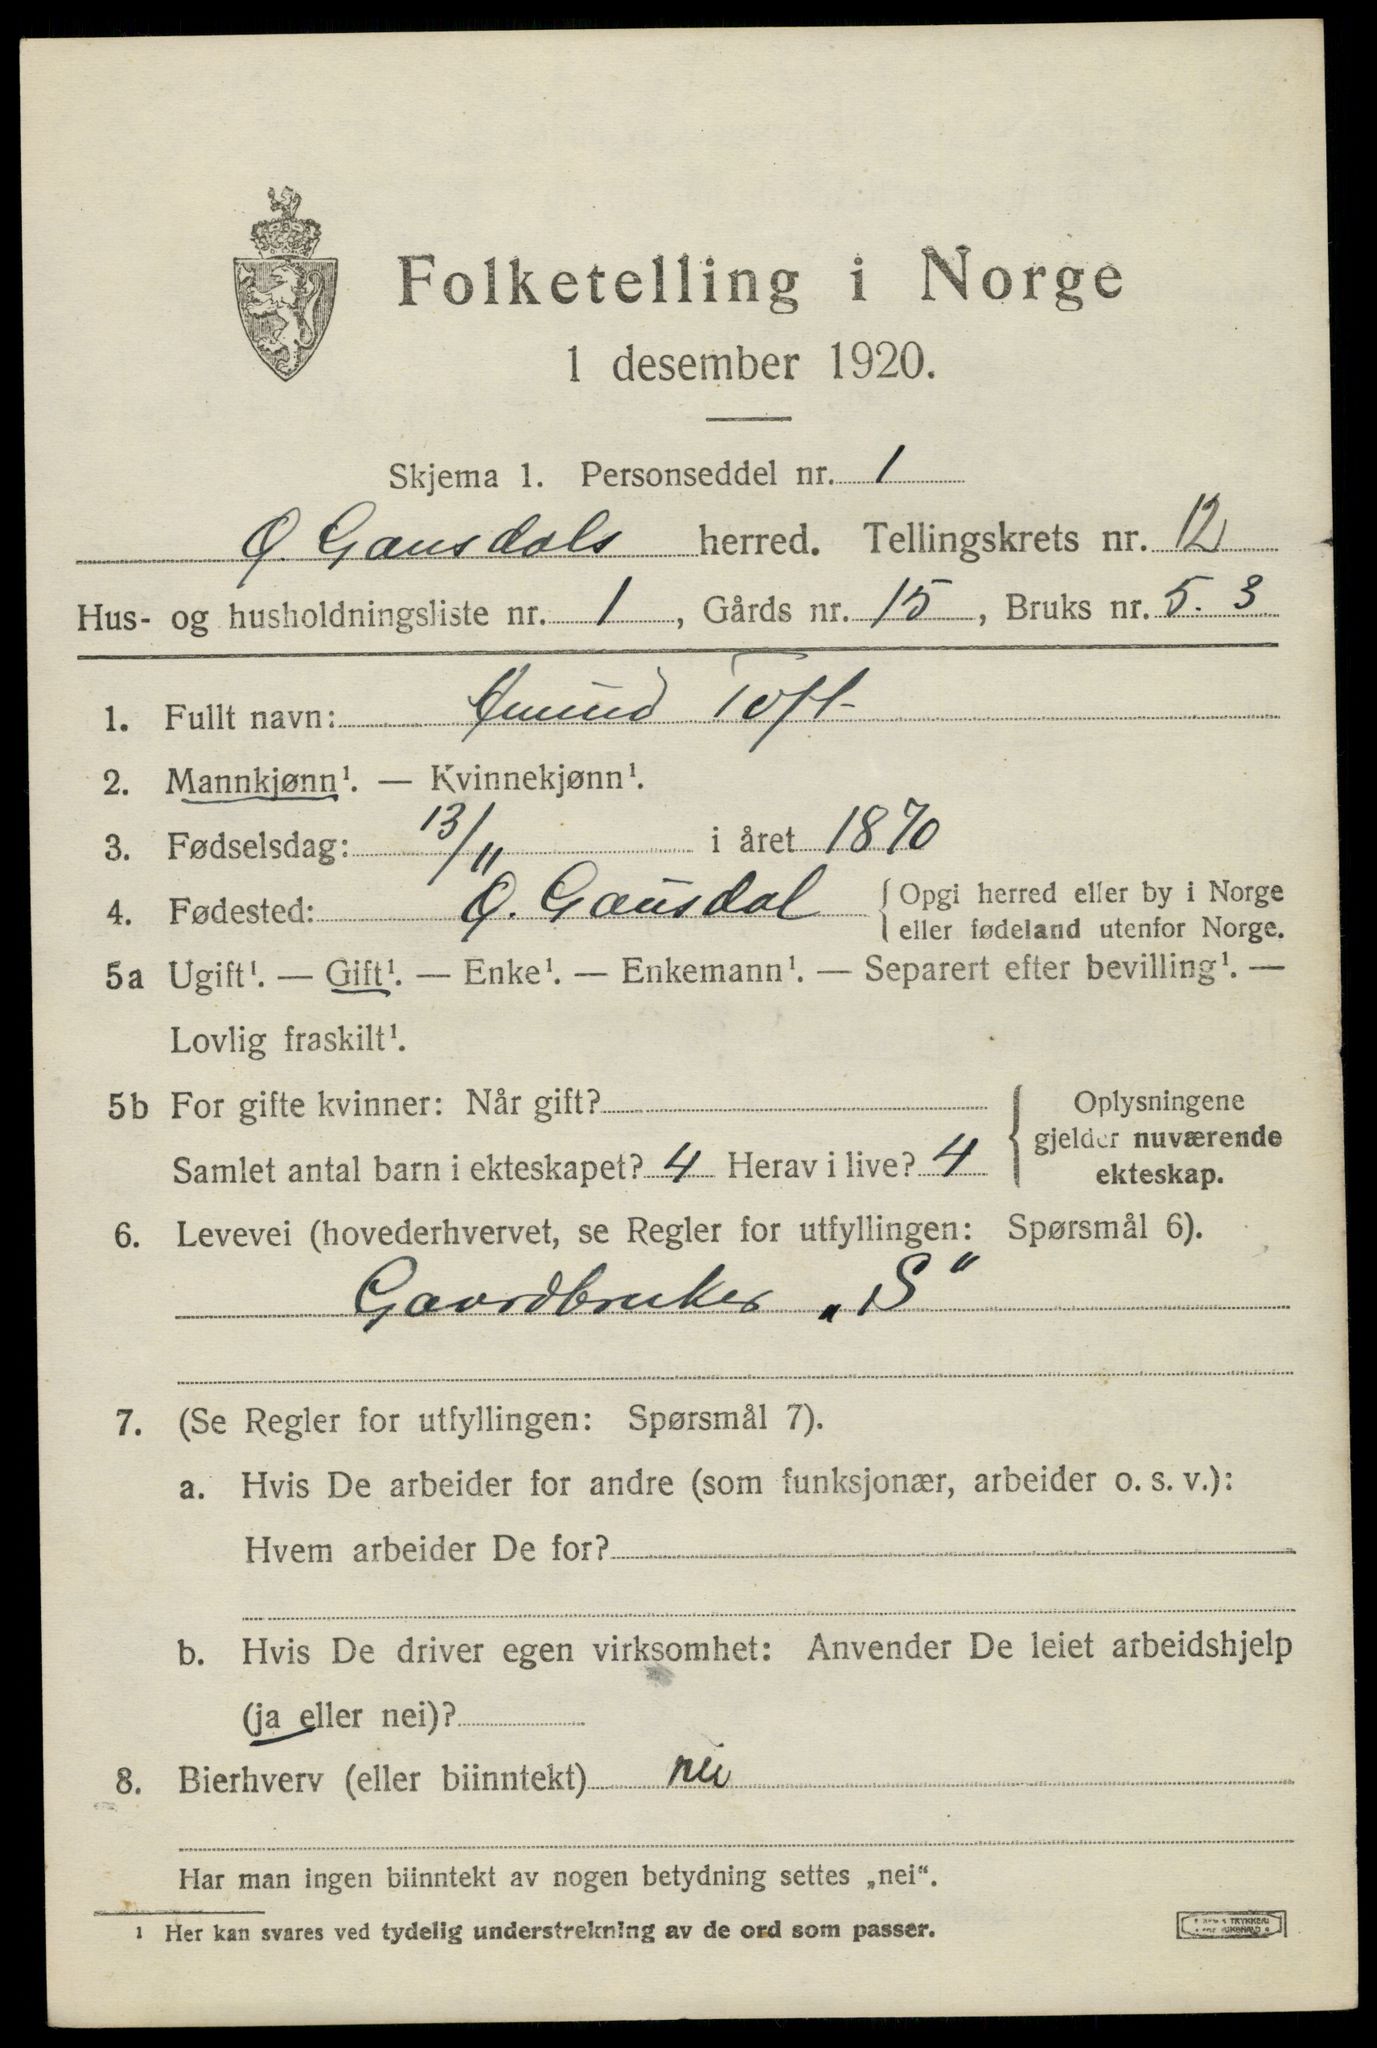 Folketelling i Norge
1 desember 1920.
Skjema 1. Personseddel nr. 1
Ø. Gausdals herred. Tellingskrets nr. 12
Hus- og husholdningsliste nr. 1, Gårds nr. 15, Bruks nr. 5. 3
1. Fullt navn: Amund Toft
2. Mannkjønn¹. — Kvinnekjønn¹.
3. Fødselsdag: 13/11 i året 1870
4. Fødested: Ø. Gausdal { Opgi herred eller by i Norge
eller fødeland utenfor Norge.
5a Ugift¹. — Gift¹. — Enke¹. — Enkemann¹. — Separert efter bevilling¹. —
Lovlig fraskilt¹.
5b For gifte kvinner: Når gift?
Samlet antal barn i ekteskapet? 4 Herav i live? 4
{ Oplysningene
gjelder nuværende
ekteskap.
6. Levevei (hovederhvervet, se Regler for utfyllingen: Spørsmål 6).
Gaardbruker „S“
7. (Se Regler for utfyllingen: Spørsmål 7).
a. Hvis De arbeider for andre (som funksjonær, arbeider o. s. v.):
Hvem arbeider De for?
b. Hvis De driver egen virksomhet: Anvender De leiet arbeidshjelp
(ja eller nei)?
8. Bierhverv (eller biinntekt) nei
Har man ingen biinntekt av nogen betydning settes „nei“.
¹ Her kan svares ved tydelig understrekning av de ord som passer.